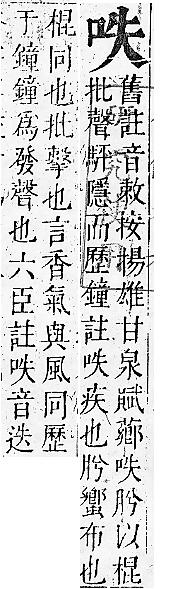 呹
舊註音敕按揚雄甘泉賦薌呹肸以棍
批聲駍隱而歷鐘註呹疾也肸蠁布也
棍同也批擊也言香氣與風同歷
于鐘鐘爲發聲也六臣註呹音迭